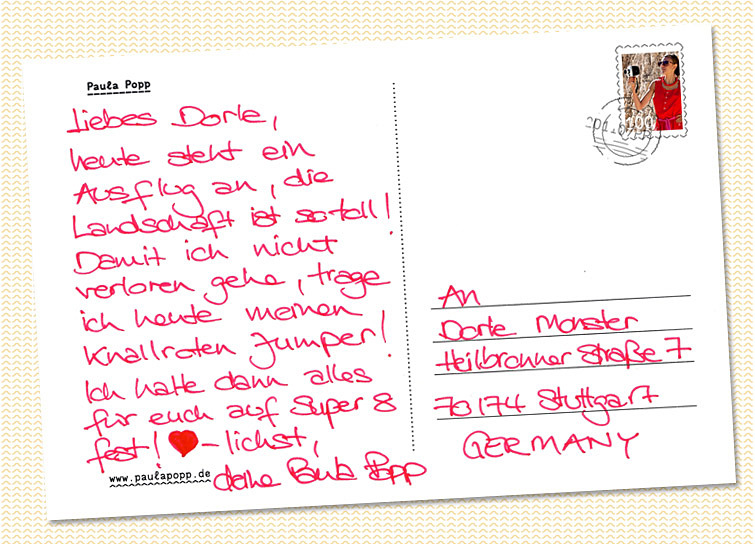 Paula Popp
Liebes Dorle,
heute steht ein
Ausflug an, die
Landschaft ist so toll!
Damit ich nicht
verloren gehe, trage
ich heute meinen
knallroten Jumper!
Ich halte dann alles
für euch auf Super 8
fest! ♥-lichst,
deine Paula Popp
www.paulapopp.de
An
Dorle Monster
Heilbronner Straße 7
70174 Stuttgart
GERMANY